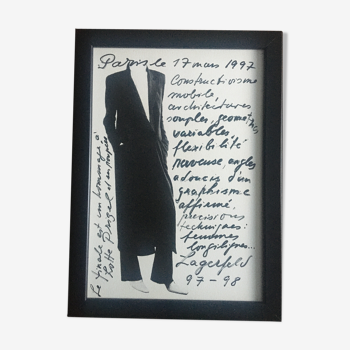 Paris, le 17 mars 1997
Constructivisme
mobile
architectures
souples, géométries
variables,
flexibilité
nerveuse, angles
adoucis d'un
graphisme
affirmé.
précisions
techniques:
femmes
longilignes...
Lagerfeld
97-98
Le finale est un hommage à
Lotte Pritzel et